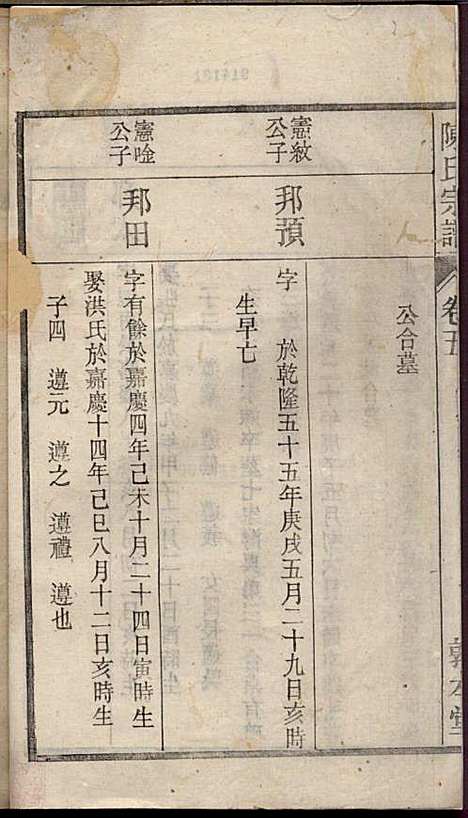 陳氏宗譜
卷五
公合墓
憲紋
公子
邦預
字　於乾隆五十五年庚戌五月二十九日亥時
生早亡
憲唫
公子
邦田
字有餘於嘉慶四年己未十月二十四日寅時生
娶洪氏於嘉慶十四年己巳八月十二日亥時生
子四　遵元　遵之　遵禮　遵也